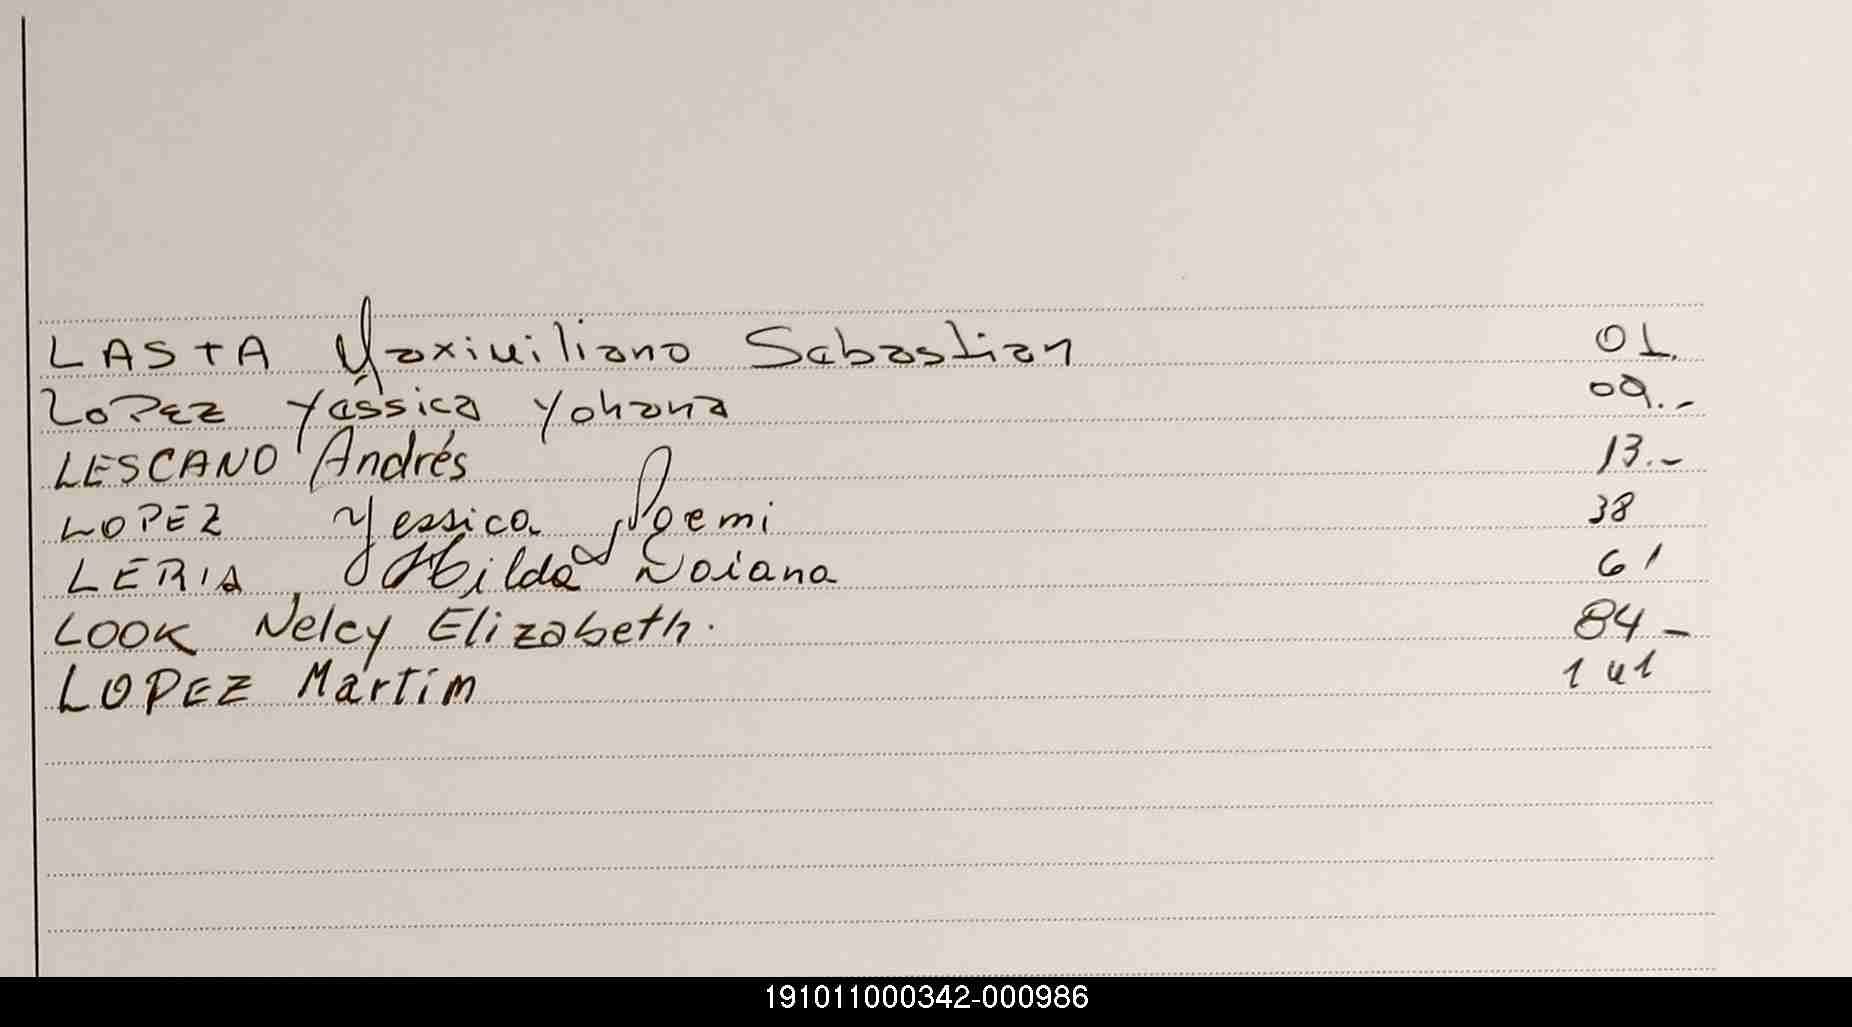 LASTA Maximiliano Sebastian 01.
LOPEZ Yessica Yohana 09.-
LESCANO Andrés 13.-
LOPEZ Yessica Noemi 38
LERIA Hilda Noiana 61
LOOK Nelcy Elizabeth. 84-
LOPEZ Martim 141
191011000342-000986